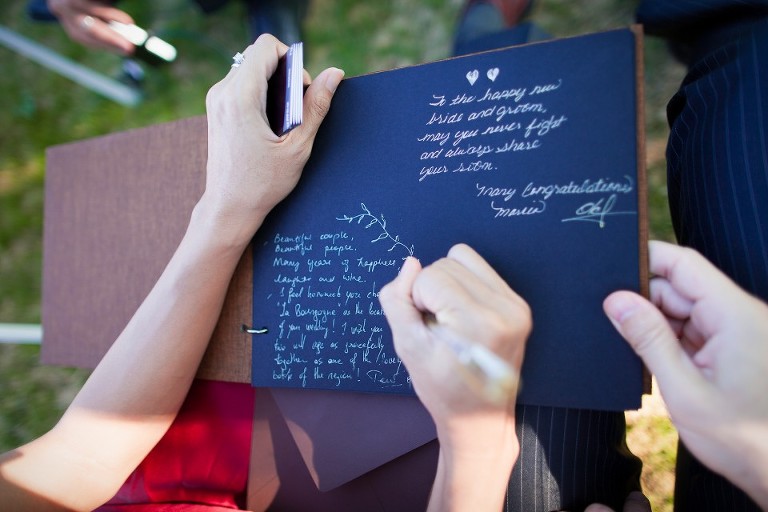 To the happy new
bride and groom,
may you never fight
and always share
your siton.
Many Congratulations
Beautiful couple,
Beautiful people.
Many years of happiness
laughter and wine.
I feel honoured you cho
"La Bourgogne" as the loca
of you wedding! I wish you
two will age as gracefully
together as one of the lovely
bottle of the region!